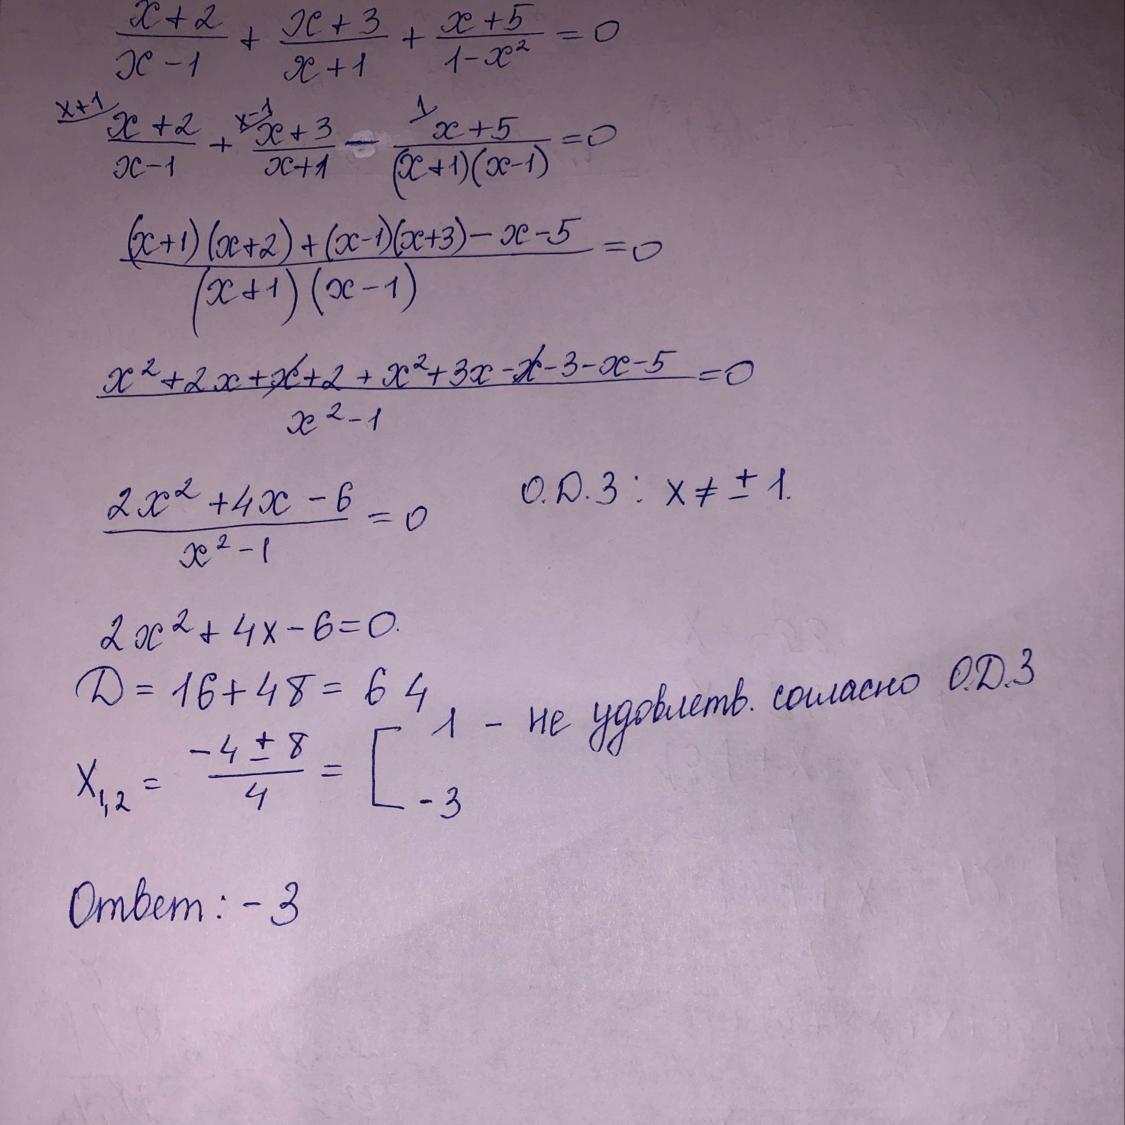 (x+2)/(x-1) + (x+3)/(x+1) + (x+5)/(1-x²) = 0
x+1 (x+2)/(x-1) + x-1 (x+3)/(x+1) - 1 (x+5)/((x+1)(x-1)) = 0
((x+1)(x+2)+(x-1)(x+3)-x-5)/((x+1)(x-1)) = 0
(x²+2x+x+2+x²+3x-x-3-x-5)/(x²-1) = 0
(2x²+4x-6)/(x²-1) = 0 О.Д.З: x ≠ ± 1.
2x²+4x-6=0.
D = 16+48 = 64
x₁,₂ = (-4 ± 8)/4 = [ 1 - не удовлетв. согласно О.Д.З
-3
Ответ: -3